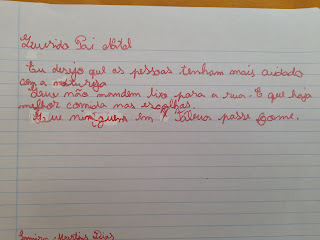 Querido Pai Natal
Eu desejo que as pessoas tenham mais cuidado
com a natureza
Que não mandem lixo para a rua. E que haja
melhor comida nas escolhas.
Que ninguém em Taleus passe fome.
Martins Dias